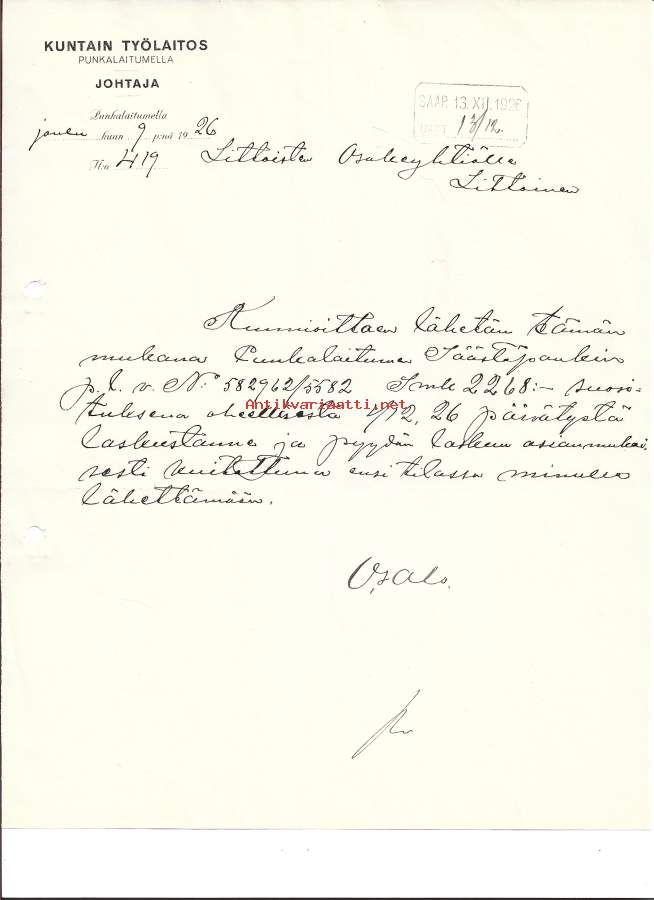 KUNTAIN TYÖLAITOS
PUNKALAITUMELLA
JOHTAJA
Punkalaitumella
joulu kuun 9 p:nä 1926
N:o 419
SAAP. 13. XII. 1926
VAST. 13/12.
Littoisten Osakeyhtiölle
Littoinen
Kunnioittaen lähetän tämän
mukana Punkalaitumen Säästöpankin
p. v. N:o 582962/5582 Smk 2268:- suori-
tuksena oheellisesta 4/12. 26 päivätystä
Antikvariaatti.net
laskustanne ja pyydän laskun asianmukai-
sesti kuitattuna ensi tilassa minulle
lähettämään.